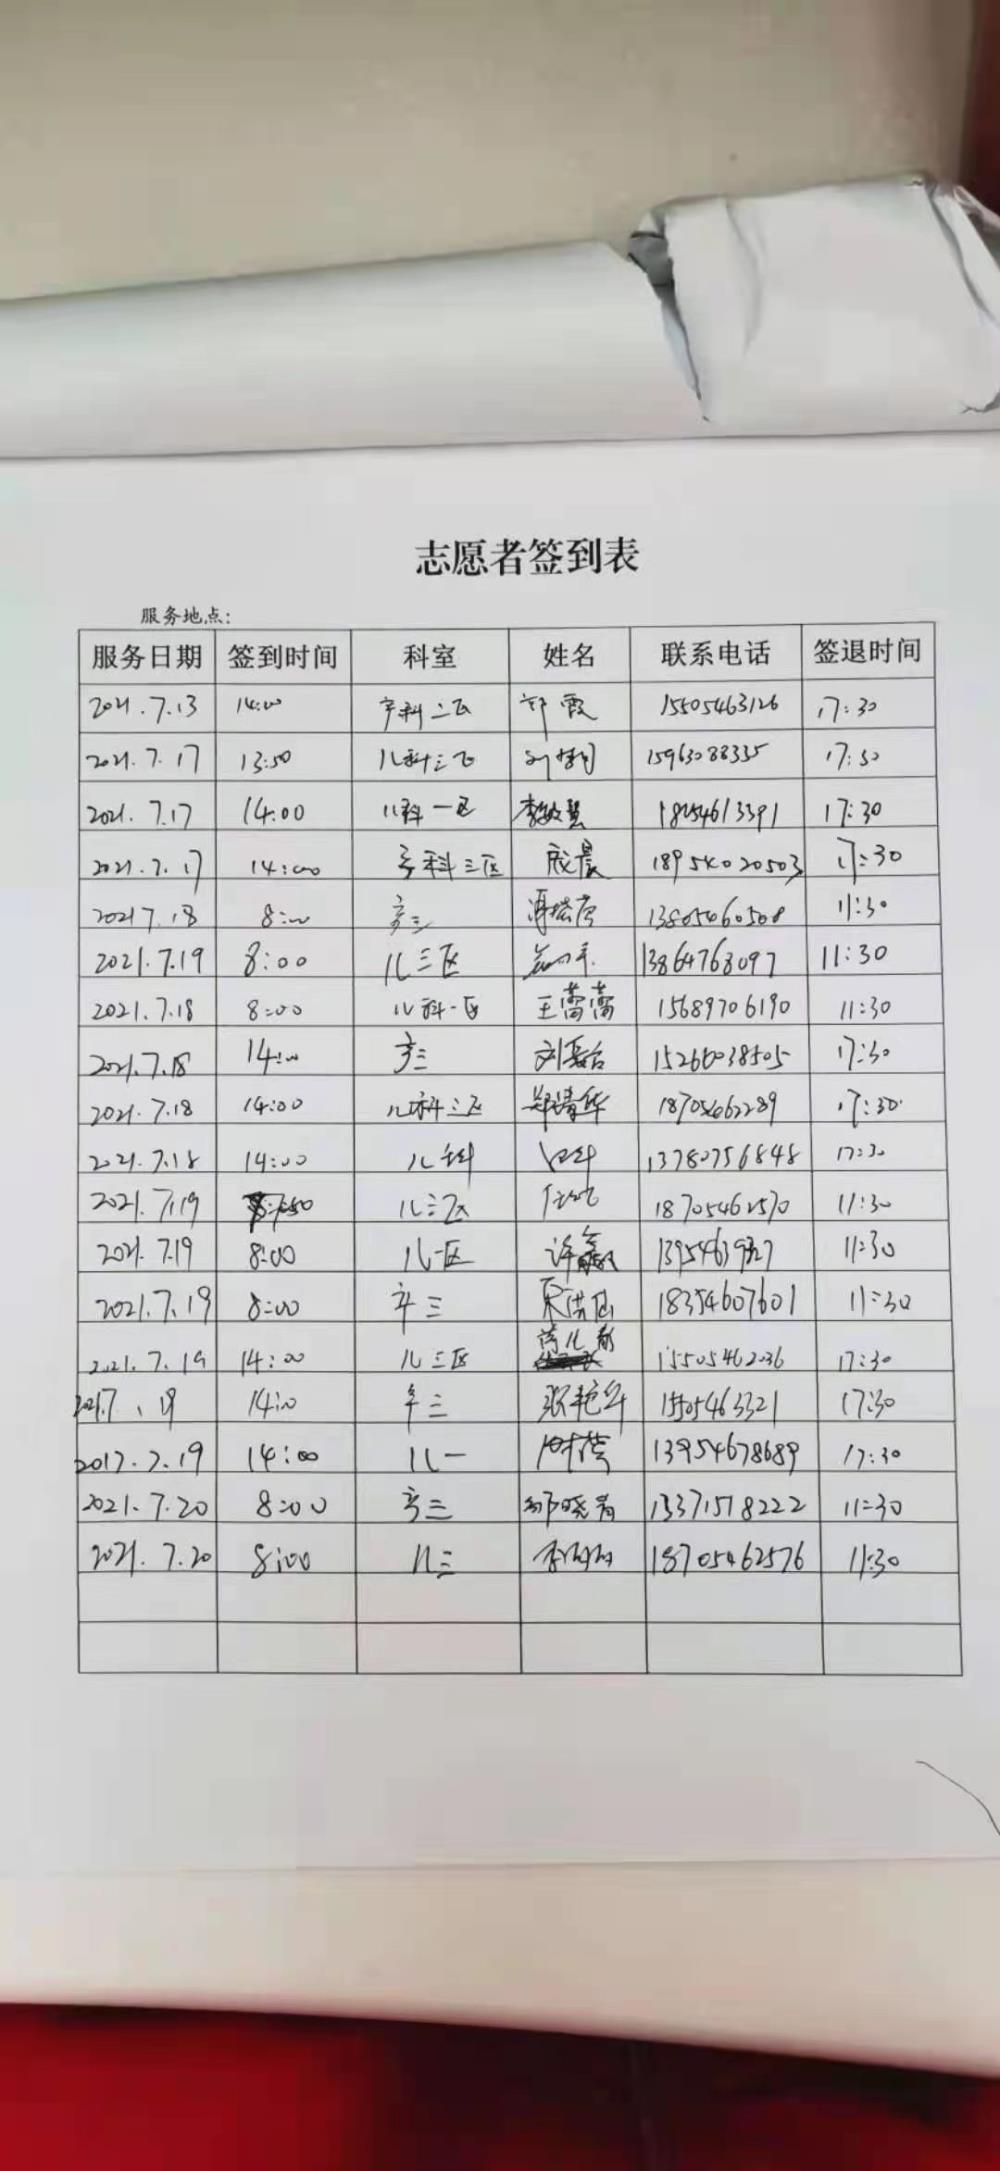 志愿者签到表
服务地点:
服务日期 签到时间 科室 姓名 联系电话 签退时间
2021.7.13 14:00 产科二区 郑霞 15505463126 17:30
2021.7.17 13:50 儿科三区 15963088335 17:30
2021.7.17 14:00 儿科一区 李敏慧 18254613391 17:30
2021.7.17 14:00 产科三区 成晨 18954020503 17:30
2021 7.18 8:00 产三 13805460508 11:30
2021.7.19 8:00 儿三区 13864763097 11:30
2021.7.18 8:00 儿科一区 王蕾蕾 15689706190 11:30
2021.7.18 14:00 产三 15266038505 17:30
2021.7.18 14:00 儿科三区 郑清华 18705462289 17:30
2021.7.18 14:00 儿科 13780756848 17:30
2021.7.19 儿三区 18705462570 11:30
2021.7.19 8:00 儿一区 许鑫 11:30
2021.7.19 8:00 产三 18354607601 11:30
2021.7.19 14:00 儿三区 15505462036 17:30
2021.7.19 14:00 产三 张艳华 15505463321 17:30
2017.7.19 14:00 儿一 13954678689 17:30
2021.7.20 8:00 产三 邹晓青 13371518222 11:30
2021.7.20 8:00 儿三 18705462576 11:30